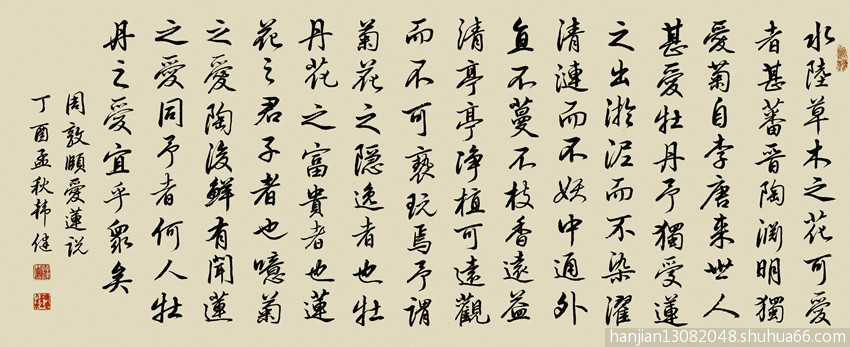 水陸草木之花可愛
者甚蕃晉陶淵明獨
愛菊自李唐来世人
甚愛牡丹予獨愛蓮
之出淤泥而不染濯
清漣而不妖中通外
直不蔓不枝香遠益
清亭亭净植可遠觀
而不可褻玩焉予謂
菊花之隱逸者也牡
丹花之富貴者也蓮
花之君子者也噫菊
之愛陶後鮮有聞蓮
之愛同予者何人牡
丹之愛宜乎衆矣
周敦頤愛蓮説
丁酉孟秋韩健
hanjian13082048.shuhua66.com